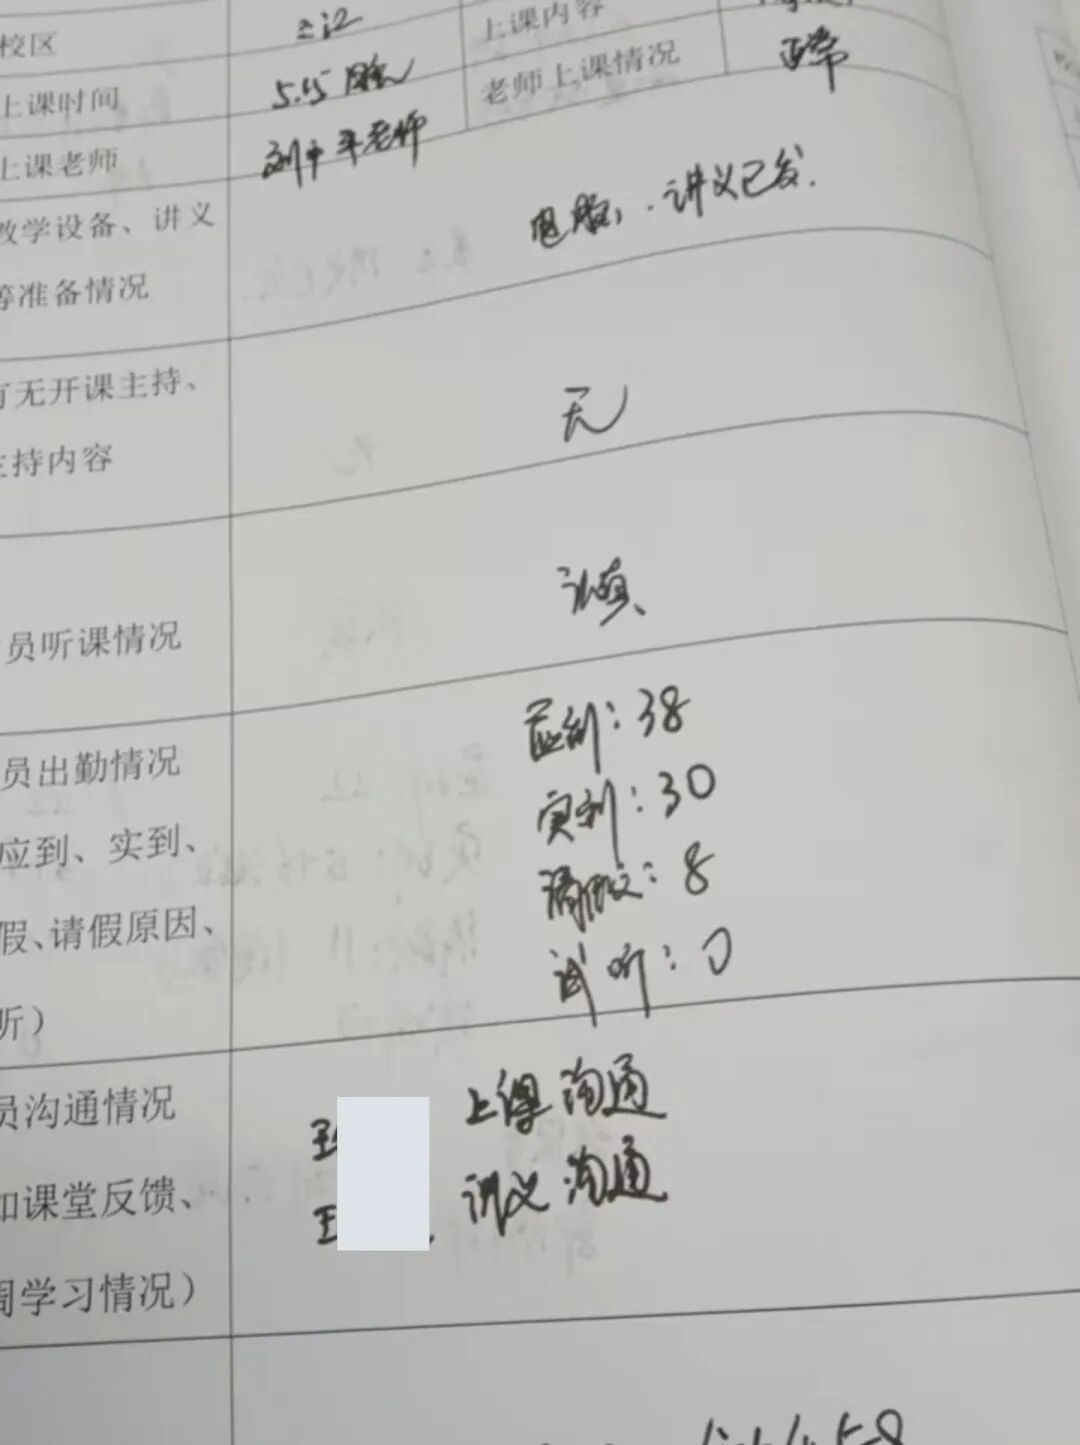 校区
上课内容
上课时间
5.15
老师上课情况
正常
上课老师
刘中平老师
教学设备、讲义
等准备情况
电脑,讲义已发.
有无开课主持、
主持内容
无
员听课情况
认真
员出勤情况
应到、实到、
假、请假原因、
听）
应到:38
实到:30
请假:8
试听:0
员沟通情况
如课堂反馈、
周学习情况）
王 上课沟通
王 讲义沟通